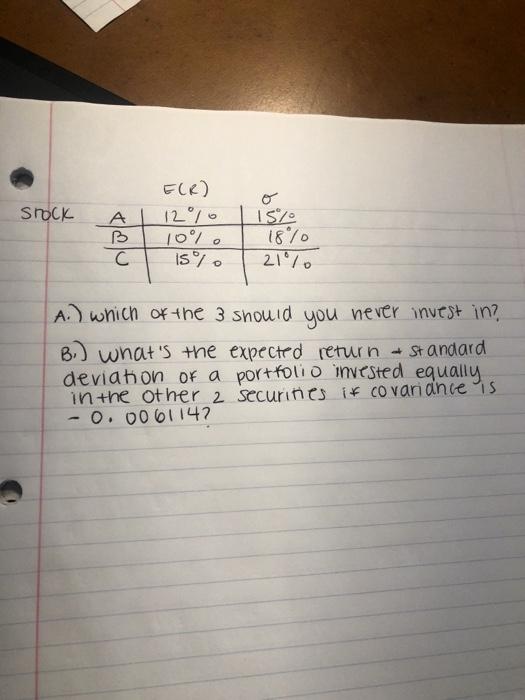 E(R) σ
Stock A 12% 15%
B 10% 18%
C 15% 21%
A.) which of the 3 should you never invest in?
B.) what's the expected return + standard
deviation of a portfolio invested equally
in the other 2 securities if covariance is
- 0.006114?